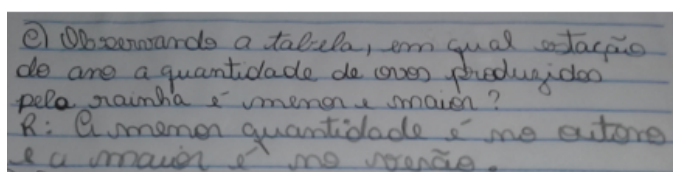 e) Observando a tabela, em qual estação
do ano a quantidade de ovos produzidos
pela rainha é menor e maior?
R: A menor quantidade é no outono
e a maior é no verão.